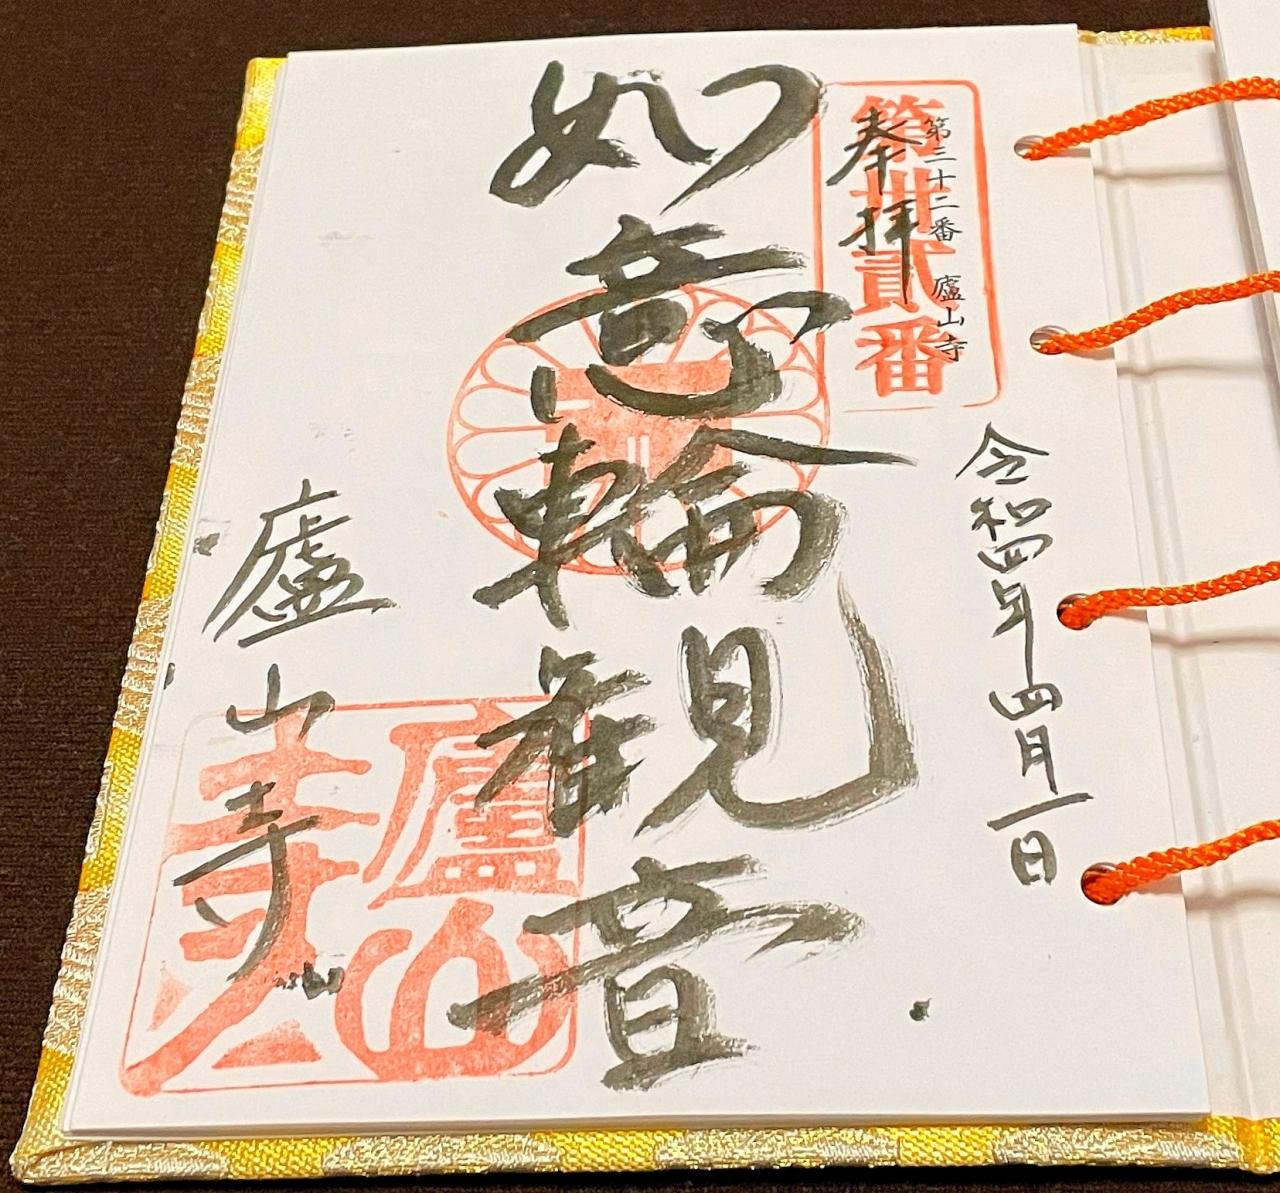 第三十二番 廬山寺
第卅貳番
奉拝
令和四年四月一日
如意輪観音
廬山寺
廬山寺